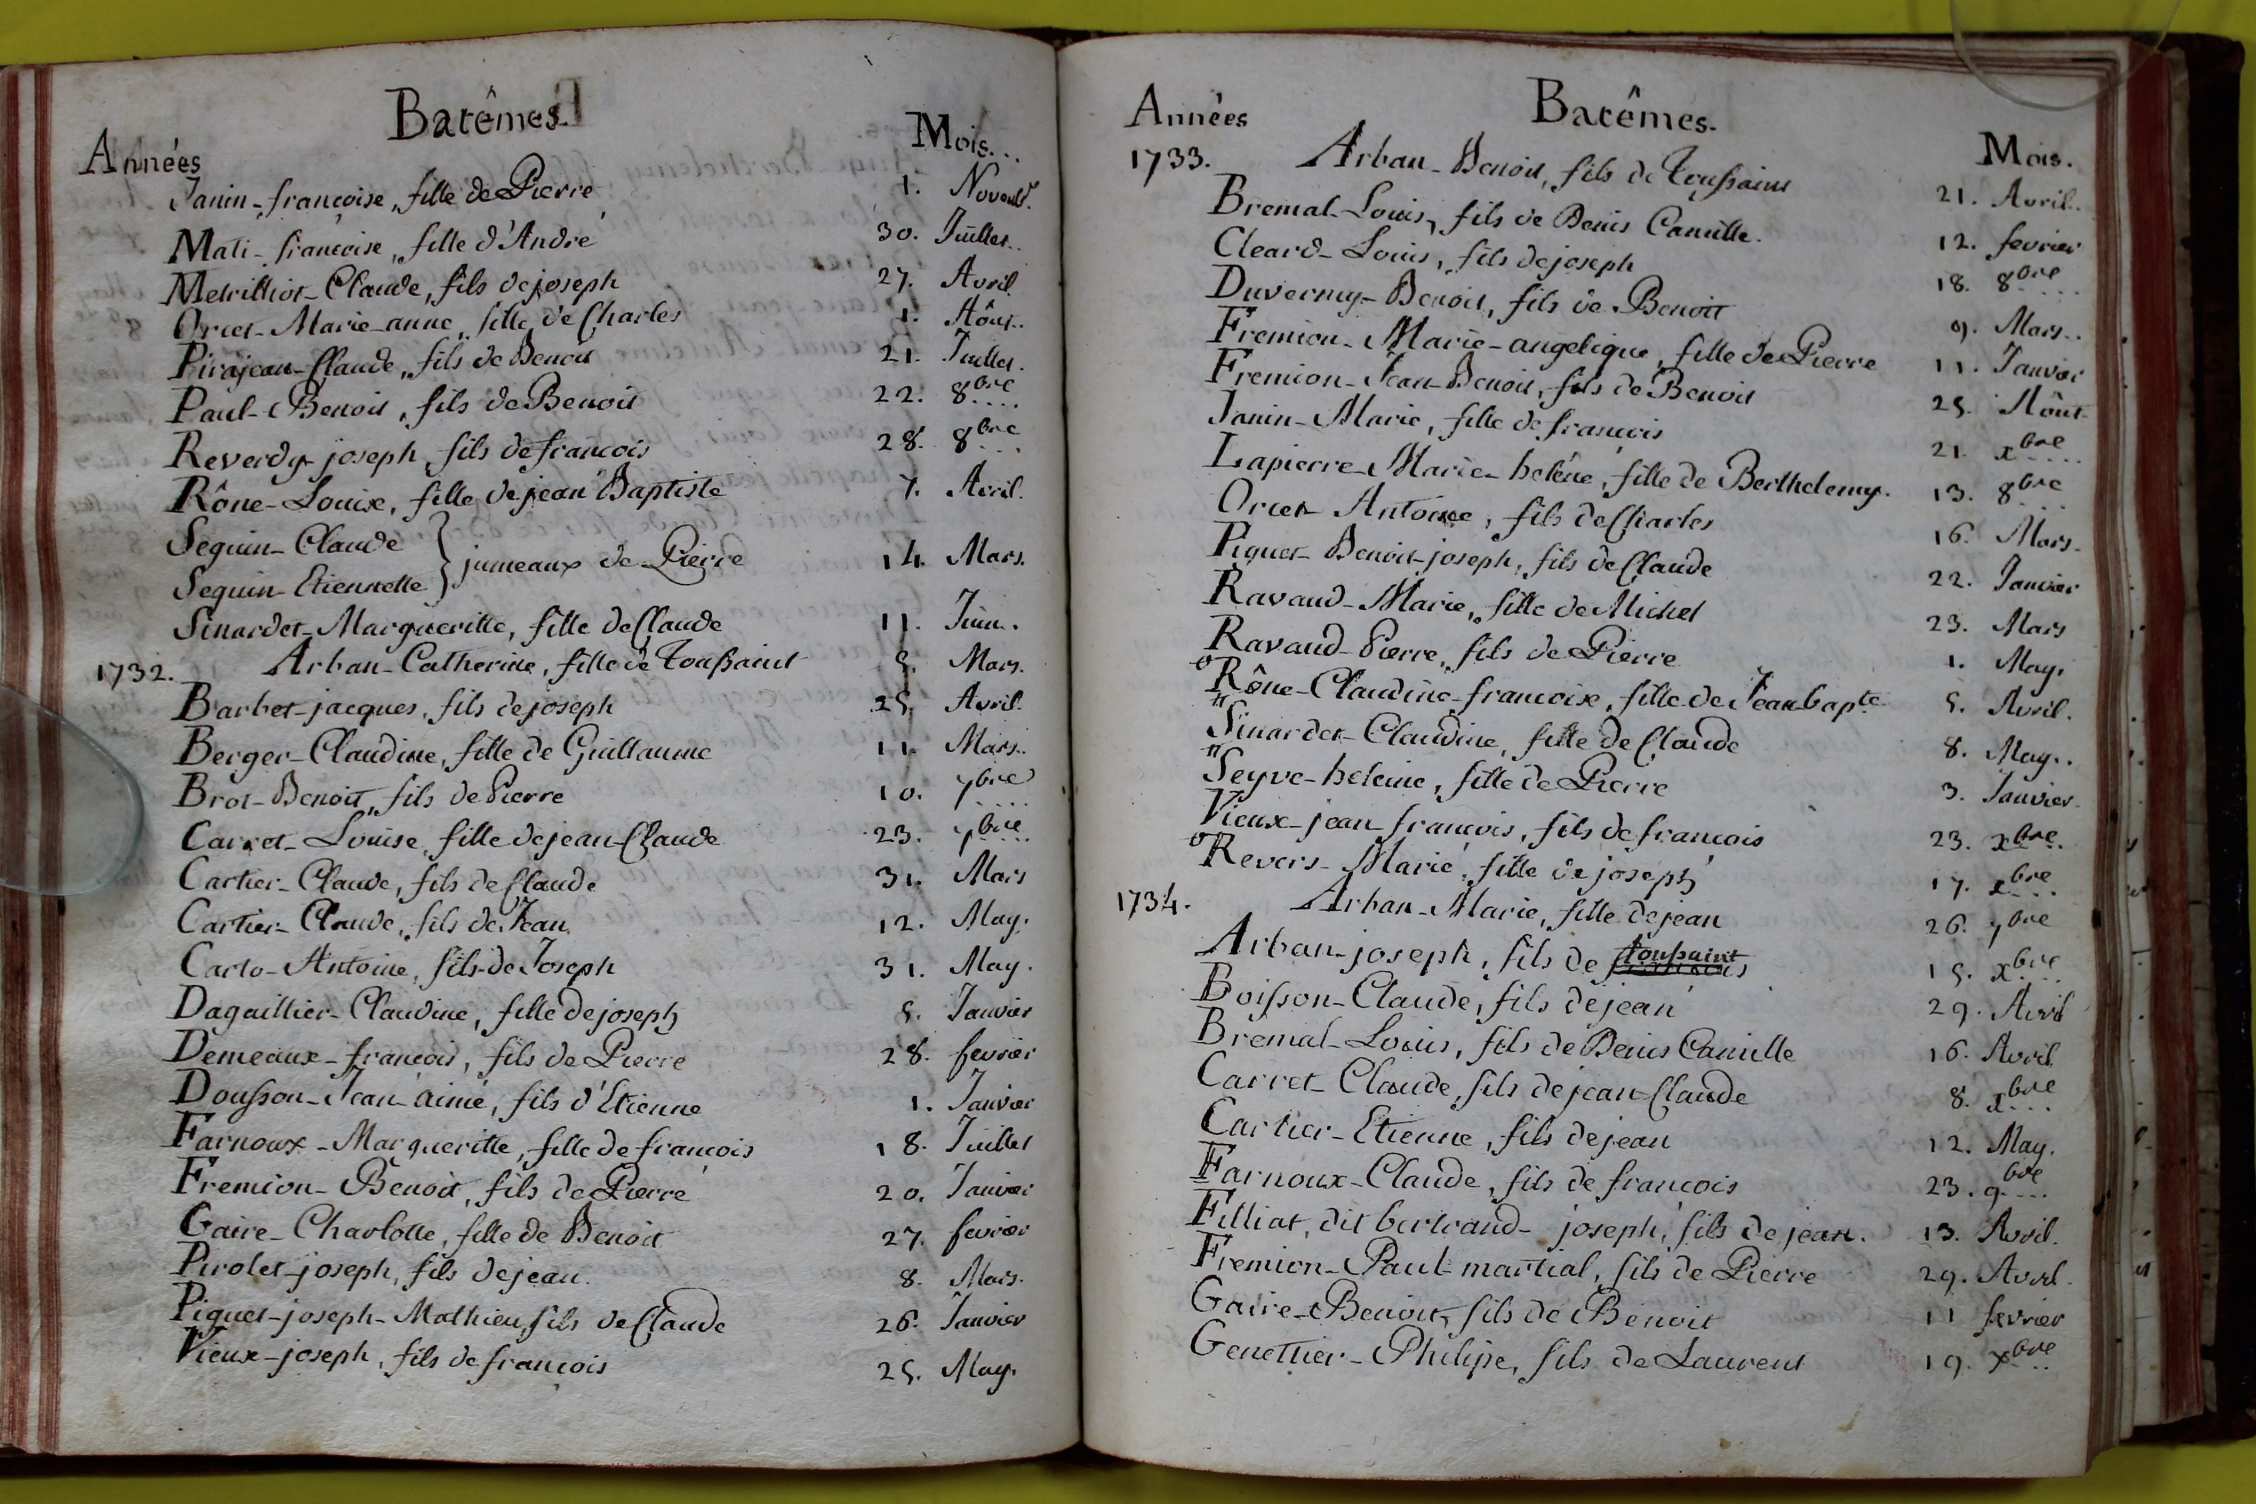 Batêmes.
Années Mois...
Janin-françoise, fille de Pierre 1. Novemb.
Mati-françoise, fille d'André 30. Juillet..
Metrilliot-Claude, fils de joseph 27. Avril
Orcet-Marie-anne, fille de Charles 1. Aôut..
Pirajean-Claude, fils de Benoit 21. Juillet.
Paul-Benoit, fils de Benoit 22. 8bre
Reverdy-joseph, fils de francois 28. 8bre
Rône-Louise, fille de jean Baptiste 7. Avril.
Seguin-Claude
} jumeaux de Pierre 14. Mars.
Seguin-Etiennette
Sinardet-Margueritte, fille de Claude 11. Juin.
1732. Arban-Catherine, fille de Toussaint 5. Mars.
Barbet-jacques, fils de joseph 25. Avril.
Berger-Claudine, fille de Guillaume 11. Mars..
Brot-Benoit, fils de Pierre 10. 7bre
Carret-Louise, fille de jean-Claude 23. 7bre
Cartier-Claude, fils de Claude 31. Mars
Cartier-Claude, fils de Jean 12. May.
Carto-Antoine, fils de Joseph 31. May.
Dagaillier-Claudine, fille de joseph 5. Janvier
Demeaux-francois, fils de Pierre 28. fevrier
Dousson-Jean-aimé, fils d'Etienne 1. Janvier
Farnoux-Margueritte, fille de francois 18. Juillet
Fremion-Benoit, fils de Pierre 20. Janvier
Gaire-Charlotte, fille de Benoit 27. fevrier
Pirolet-joseph, fils de jean. 8. Mars.
Piquet-joseph-Mathieu, fils de Claude 26. Janvier
Vieux-joseph, fils de francois 25. May.
Années Batêmes. Mois.
1733. Arban-Benoit, fils de Toussaint 21. Avril..
Bremal-Louis, fils de Denis Camille. 12. fevrier
Cleard-Louis, fils de joseph 18. 8bre
Duvernay-Benoit, fils de Benoit 9. Mars..
Fremion-Marie-angelique, fille de Pierre 11. Janvier
Fremion-Jean-Benoit, fils de Benoit 25. Aôut
Janin-Marie, fille de francois 21. xbre
Lapierre-Marie-heléne, fille de Berthelemy. 13. 8bre
Orcet-Antoine, fils de Charles 16. Mars.
Piquet-Benoit-joseph, fils de Claude 22. Janvier
Ravaud-Marie, fille de Michel 23. Mars
Ravaud-Pierre, fils de Pierre 1. May.
Rône-Claudine-francoise, fille de Jean-bapte 5. Avril.
Sinardet-Claudine, fille de Claude 8. May..
Seyve-heleine, fille de Pierre 3. Janvier.
Vieux-jean-francois, fils de francois 23. xbre.
Revers-Marie, fille de joseph 17. xbre
1734. Arban-Marie, fille de jean 26. 7bre
Arban-joseph, fils de francois toussaint 15. xbre
Boisson-Claude, fils de jean 29. Avril
Bremal-Louis, fils de Denis Camille 16. Avril
Carret-Claude, fils de jean-Claude 8. xbre
Cartier-Etienne, fils de jean 12. May.
Farnoux-Claude, fils de francois 23. 9bre
Filliat, dit bertrand-joseph, fils de jean. 13. Avril.
Fremion-Paul-martial, fils de Pierre 29. Avril.
Gaire-Benoit, fils de Benoit 11 fevrier
Genettier-Philipe, fils de Laurent 19. xbre